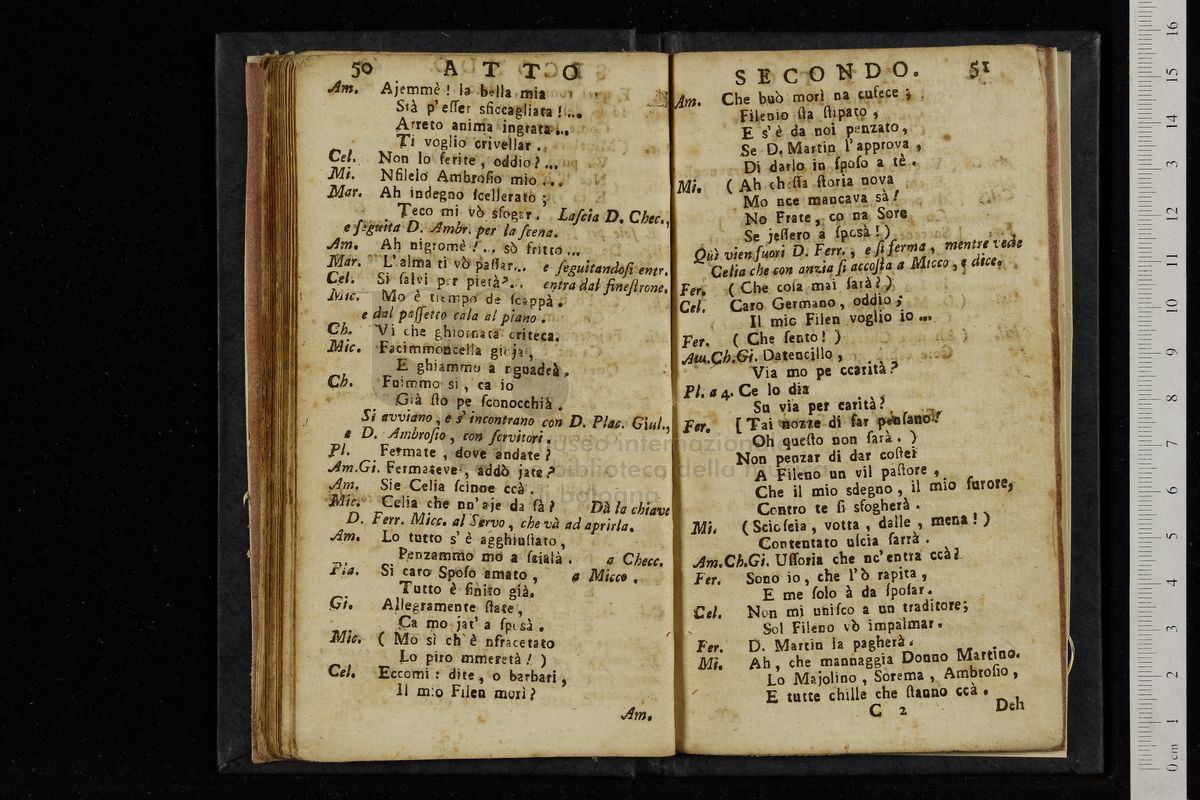 50 ATTO
Am. Ajemmè! la bella mia
Stà p'esser sficcagliata!...
Arreto anima ingrata...
Ti voglio crivellar.
Cel. Non lo ferite, oddio?...
Mi. Nfilelo Ambrosio mio...
Mar. Ah indegno scellerato;
Teco mi vò sfogar. Lascia D. Chec.,
e seguita D. Ambr. per la scena.
Am. Ah nigromè!... sò fritto...
Mar. L'alma ti vò passar... e seguitandosi entr.
Cel. Si salvi per pietà?.. entra dal finestrone.
Mic. Mo è tiempo de scappà.
e dal passetto cala al piano.
Ch. Vi che ghiornata criteca.
Mic. Facimmoncella gioja,
E ghiammo a nguadeà.
Ch. Fuimmo sì, ca io
Già sto pe sconocchià.
Si avviano, e s'incontrano con D. Plac. Giul.,
e D. Ambrosio, con servitori.
Pl. Fermate, dove andate?
Am.Gi. Fermateve, addò jate?
Am. Sie Celia scinne ccà.
Mic. Celia che nn'aje da fà? Dà la chiave
D. Ferr. Micc. al Servo, che và ad aprirla.
Am. Lo tutto s'è agghiustato,
Penzammo mo a scialà. a Checc.
Pla. Si caro Sposo amato, a Micco.
Tutto è finito già.
Gi. Allegramente state,
Ca mo jat'a sposà.
Mic. ( Mo sì ch'è nfracetato
Lo piro mmeretà! )
Cel. Eccomi: dite, o barbari,
Il mio Filen morì?
Am.
SECONDO. 51
Am. Che buò morì na cufece;
Filenio sta stipato,
E s'è da noi penzato,
Se D. Martin l'approva,
Di darlo in sposo a tè.
Mi. ( Ah chessa storia nova
Mo nce mancava sà!
No Frate, co na Sore
Se jessero a sposà!)
Quì vien fuori D. Ferr., e si ferma, mentre vede
Celia che con anzia si accosta a Micco, e dice.
Fer. ( Che cosa mai sarà?)
Cel. Caro Germano, oddio;
Il mio Filen voglio io...
Fer. ( Che sento! )
Am.Ch.Gi. Datencillo,
Via mo pe ccarità?
Pl. a 4. Ce lo dia
Su via per carità?
Fer. [ Tai nozze di far pensano?
Oh questo non sarà. )
Non penzar di dar costei
A Fileno un vil pastore,
Che il mio sdegno, il mio furore,
Contro te si sfogherà.
Mi. ( Scioscia, votta, dalle, mena! )
Contentato uscia sarrà.
Am.Ch.Gi. Ussoria che nc'entra ccà?
Fer. Sono io, che l'ò rapita,
E me solo à da sposar.
Cel. Non mi unisco a un traditore;
Sol Fileno vò impalmar.
Fer. D. Martin la pagherà.
Mi. Ah, che mannaggia Donno Martino.
Lo Majolino, Sorema, Ambrosio,
E tutte chille che stanno ccà.
C 2 Deh
museo internazionale
e biblioteca della musica
di bologna
0 cm 1 2 3 4 5 6 7 8 9 10 11 12 13 14 15 16